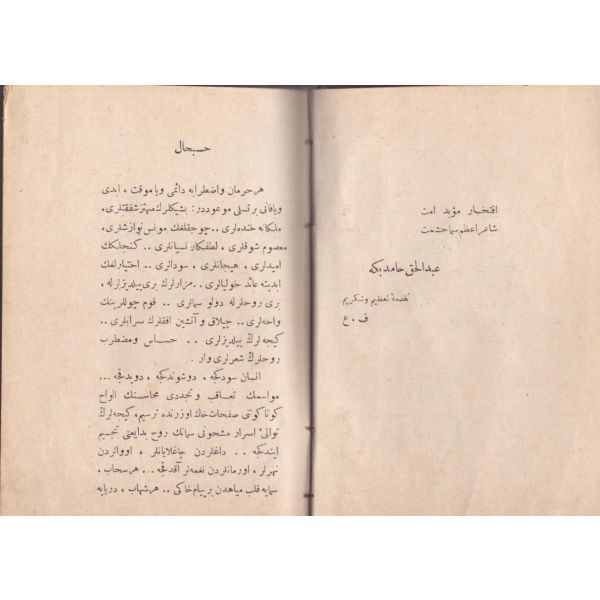 افتخار مؤبد امت
شاعر اعظم سماحشمت
عبدالحق حامد بكه
تقدمهٔ تعظیم و تكریم
ف ۰ ع
حسبحال
هر حرمان و اضطرابه دائمی و یا موقت ، ابدی
و یا فانی بر تسلی موعوددر: بشیكلرك مهتز شفقتلری،
ملكانه خنده‌لری .. چوجقلغك مونس نوازشلری،
معصوم شوقلری، لطفكار نسیانلری .. كنجلكك
امیدلری ، هیجانلری، سودالری .. اختیارلغك
ابدیته عائد خولیالری .. مزارلرك بری ییلدیزلرله ،
بری روحلرله دولو سمالری .. قوم چوللرینك
واحه‌لری .. چیپلاق و آتشین افقلرك سرابلری ..
كیجه‌لرك ییلدیزلری .. حساس و مضطرب
روحلرك شعرلری وار .
انسان سودكجه ، دوشوندكجه ، دویدقجه ...
مواسمك تعاقب و تجددی محاسنك الواح
كوناكوننی صفحات خاك اوزرنده ترسیم، كیجه‌لرك
توالیٔ اسرار مشحونی سمانك روح بدایعنی تجسیم
ایتدكجه .. داغلردن چاغلایانلر ، اووالردن
نهرلر ، اورمانلردن نغمه‌لر آقدقجه ... هر سحاب ،
سمایه قلب میاهدن بر پیام خاكی .. هر شهاب ، دریایه